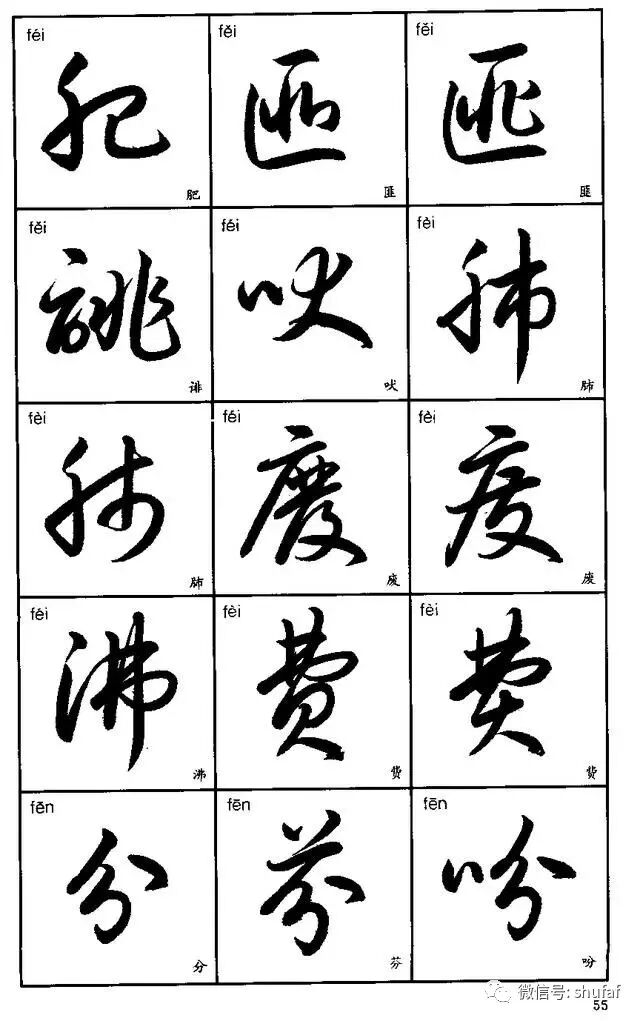 féi fěi fěi
肥 匪 匪
肥 匪 匪
fěi féi fèi
诽 吠 肺
诽 吠 肺
fèi féi fèi
肺 废 废
肺 废 废
féi fèi fèi
沸 费 费
沸 费 费
fēn fēn fēn
分 芬 吩
分 芬 吩
微信号: shufaf
55